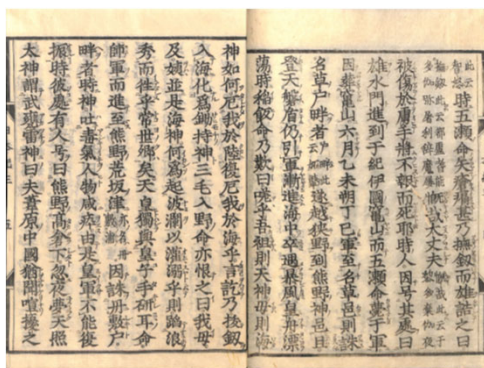 此云智怒時五瀬命矢瘡痛甚乃撫劔而雄誥之曰
慨哉大丈夫
被傷於虜手將不報而死耶時人因号其處曰
雄水門進到于紀伊國竈山而五瀬命薨于軍
因葬竈山六月乙未朔丁巳軍至名草邑則誅
名草戸畔者遂越狹野到熊野神邑且
登天磐盾仍引軍漸進海中卒遇暴風皇舟漂
蕩時稻飯命乃歎曰嗟乎吾祖則天神母則海
神如何厄我於陸復厄我於海乎言訖乃拔劔
入海化爲鋤持神三毛入野命亦恨之曰我母
及姨並是海神何爲起波瀾以灌溺乎則蹈浪
秀而往乎常世郷矣天皇獨與皇子手研耳命
帥軍而進至熊野荒坂津因誅丹敷戸
畔者時神吐毒氣人物咸瘁由是皇軍不能復
振時彼處有人号曰熊野高倉下忽夜夢天照
太神謂武甕雷神曰夫葦原中國猶聞喧擾之